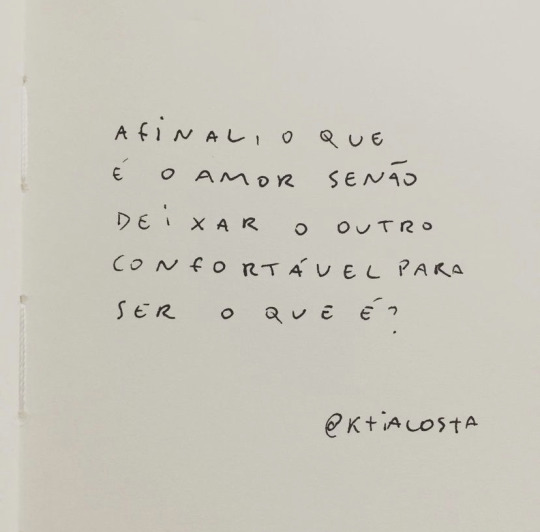 AfiNAL, O QUE
É O AMOR SENÃO
DEiXAR O OUTRO
CONfORTÁVEL PARA
SER O QUE É?
@KtiACOStA